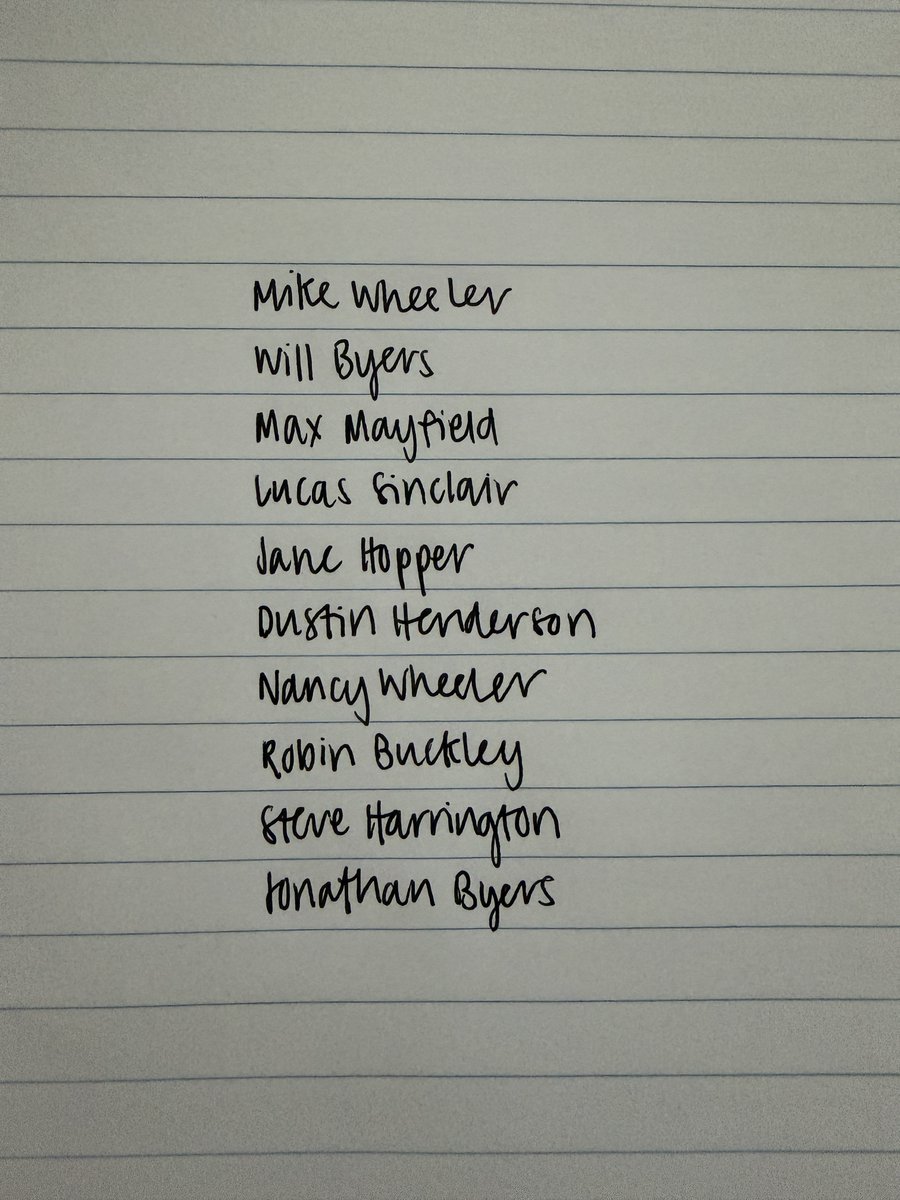 Mike Wheeler
Will Byers
Max Mayfield
Lucas Sinclair
Jane Hopper
Dustin Henderson
Nancy Wheeler
Robin Buckley
Steve Harrington
Jonathan Byers